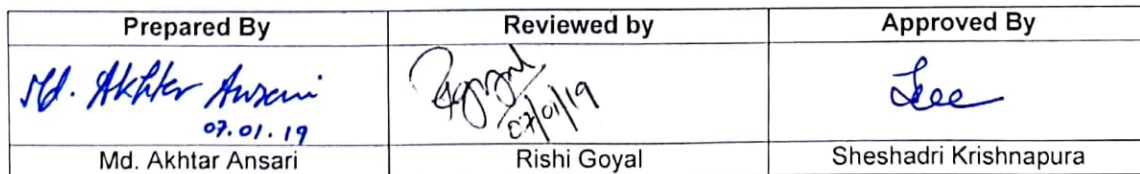 Prepared By
Reviewed by
Approved By
Md. Akhtar Ansari
07.01.19
RGoyal
07/01/19
Md. Akhtar Ansari
Rishi Goyal
Sheshadri Krishnapura